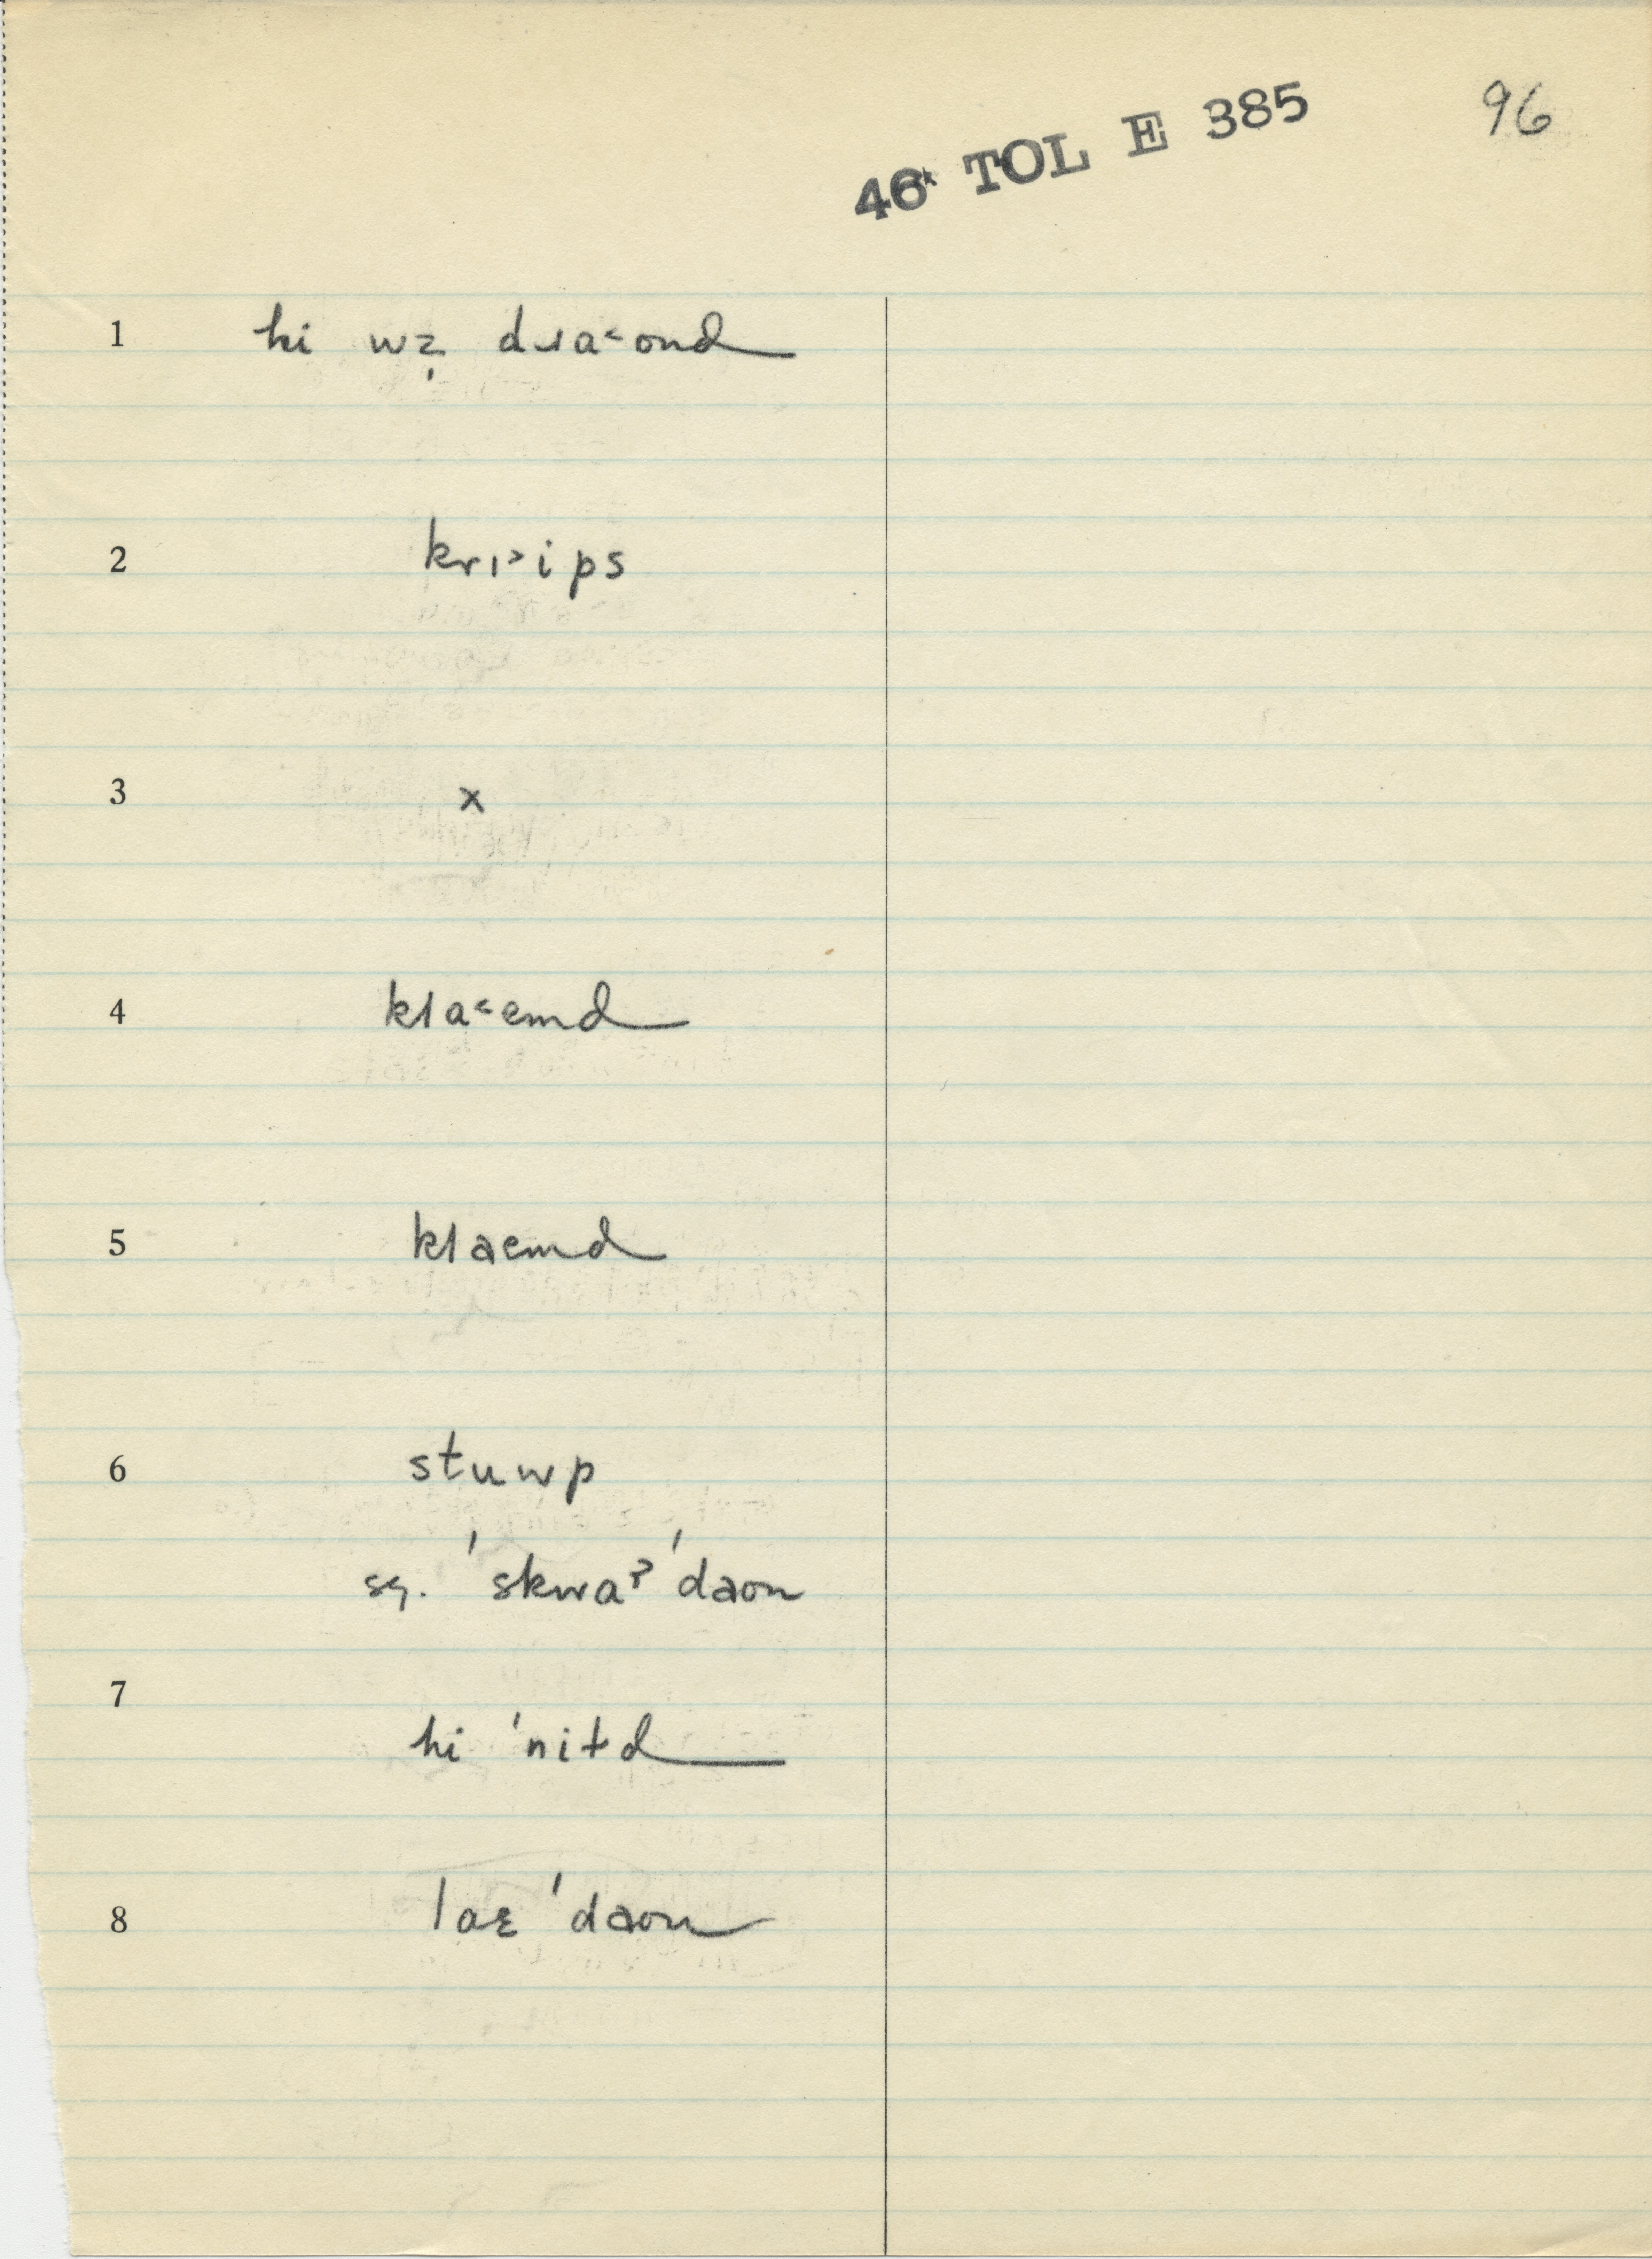 46* TOL E 385
96
1 hi wz̩ dɹa˂ond
2 krı˃ips
3 x
4 kla˂emd
5 klaemd
6 stuwp
sq. ˈskwaʔ ˈdaon
7 hi ˈnitd
8 laɛ ˈdaon